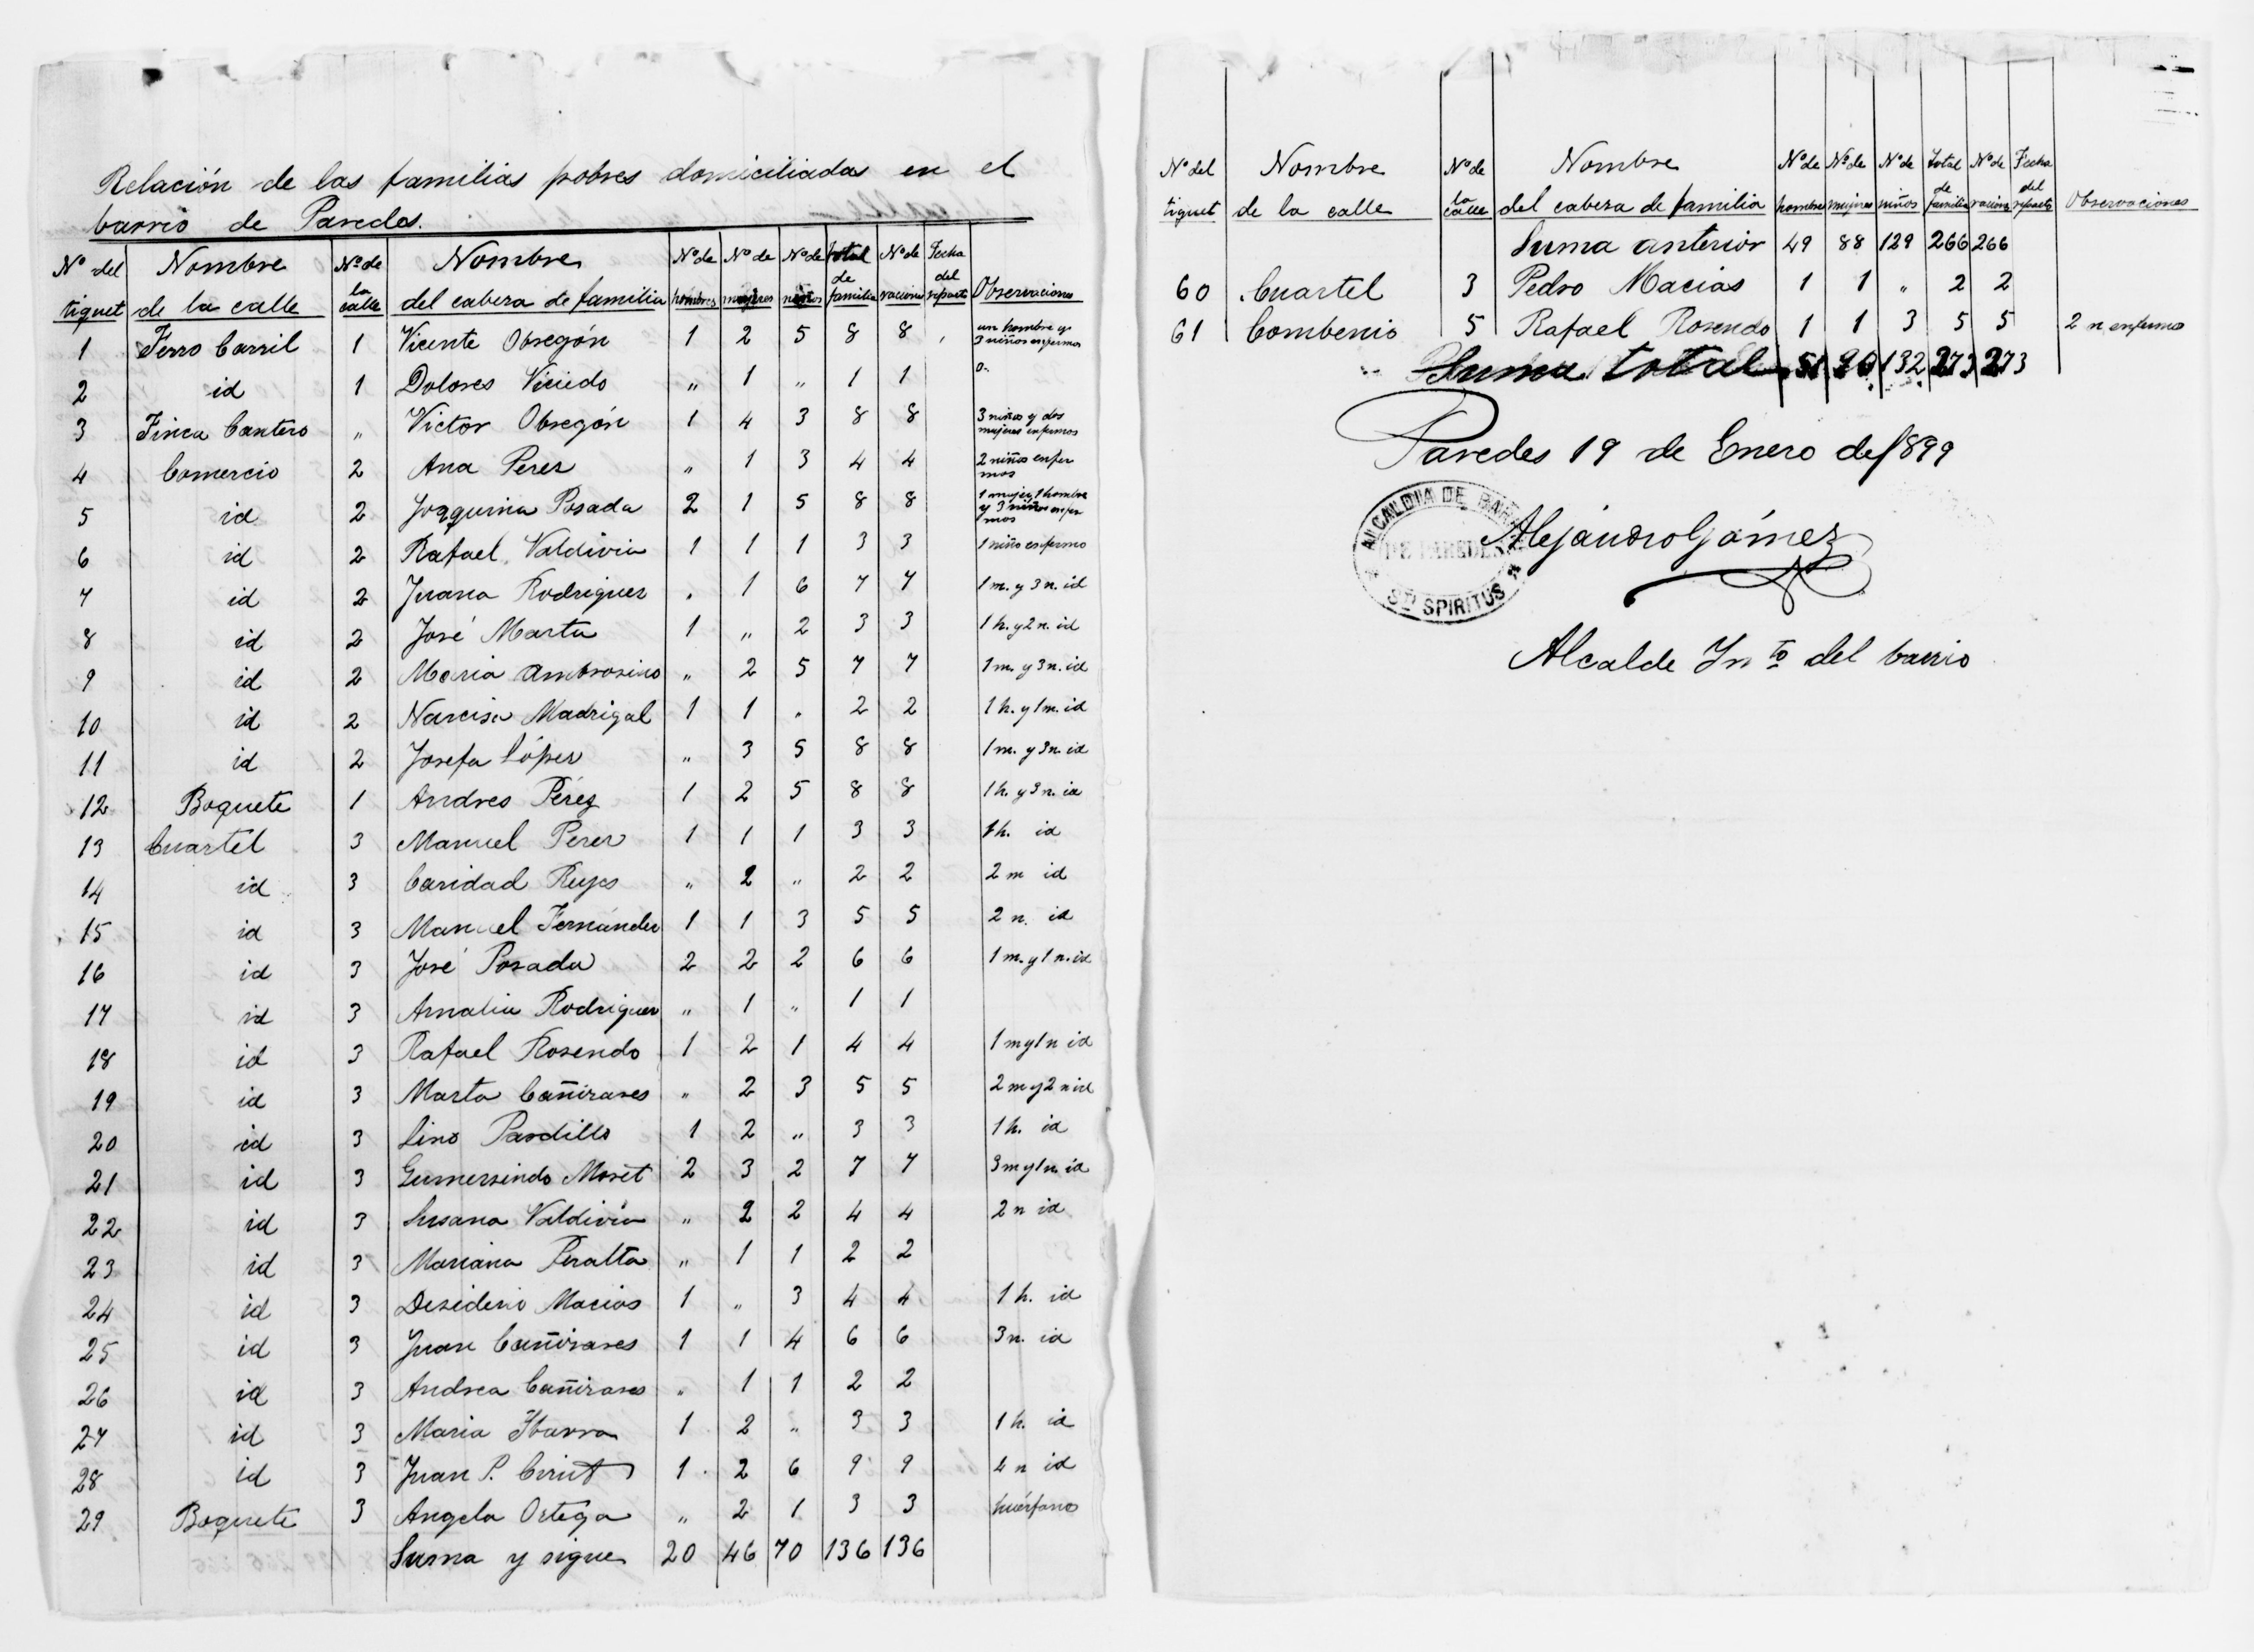 Relación de las familias pobres domiciliadas en el
barrio de Paredes.
Nº del tiquet | Nombre de la calle | Nº de la calle | Nombre del cabeza de familia | Nº de hombres | Nº de mujeres | Nº de niños | Total de familia | Nº de raciones | Fecha del reparto | Observaciones
1 Ferro Carril 1 Vicente Obregón 1 2 5 8 8 un hombre y 3 niños enfermos
2 id 1 Dolores Viciedo " 1 " 1 1
3 Finca Cantero " Victor Obregón 1 4 3 8 8 3 niños y dos mujeres enfermos
4 Comercio 2 Ana Perez " 1 3 4 4 2 niños enfermos
5 id 2 Joaquina Posada 2 1 5 8 8 1 mujer, 1 hombre y 3 niños enfermos
6 id 2 Rafael Valdivia 1 1 1 3 3 1 niño enfermo
7 id 2 Juana Rodriguez " 1 6 7 7 1 m. y 3 n. id
8 id 2 José Marta 1 " 2 3 3 1 h. y 2 n. id
9 id 2 Maria Ambrosino " 2 5 7 7 1 m. y 3 n. id
10 id 2 Narcisa Madrigal 1 1 " 2 2 1 h. y 1 m. id
11 id 2 Josefa López " 3 5 8 8 1 m. y 3 n. id
12 Boquete 1 Andres Pérez 1 2 5 8 8 1 h. y 3 n. id
13 Cuartel 3 Manuel Perez 1 1 1 3 3 1 h. id
14 id 3 Caridad Reyes " 2 " 2 2 2 m id
15 id 3 Manuel Fernández 1 1 3 5 5 2 n. id
16 id 3 José Posada 2 2 2 6 6 1 m. y 1 n. id
17 id 3 Amalia Rodriguez " 1 " 1 1
18 id 3 Rafael Rosendo 1 2 1 4 4 1 m y 1 n id
19 id 3 Marta Cañizares " 2 3 5 5 2 m y 2 n id
20 id 3 Lino Pardillo 1 2 " 3 3 1 h. id
21 id 3 Gumersindo Moret 2 3 2 7 7 3 m y 1 n. id
22 id 3 Susana Valdivia " 2 2 4 4 2 n id
23 id 3 Mariana Peralta " 1 1 2 2
24 id 3 Desiderio Macias 1 " 3 4 4 1 h. id
25 id 3 Juan Cañizares 1 1 4 6 6 3 n. id
26 id 3 Andrea Cañizares " 1 1 2 2
27 id 3 Maria Ibarra 1 2 " 3 3 1 h. id
28 id 3 Juan P. 1 2 6 9 9 4 n id
29 Boquete 3 Angela Ortega " 2 1 3 3 huérfano
Suma y sigue 20 46 70 136 136
Nº del tiquet | Nombre de la calle | Nº de la calle | Nombre del cabeza de familia | Nº de hombres | Nº de mujeres | Nº de niños | Total de familia | Nº de raciones | Fecha del reparto | Observaciones
Suma anterior 49 88 129 266 266
60 Cuartel 3 Pedro Macias 1 1 " 2 2
61 Combenio 5 Rafael Rosendo 1 1 3 5 5 2 n enfermos
Suma total 51 90 132 273 273
Paredes 19 de Enero de 1899
ALCALDIA DE BARRIO
DE PAREDES
STI SPIRITUS
Alejandro Gómez
Alcalde Into del barrio